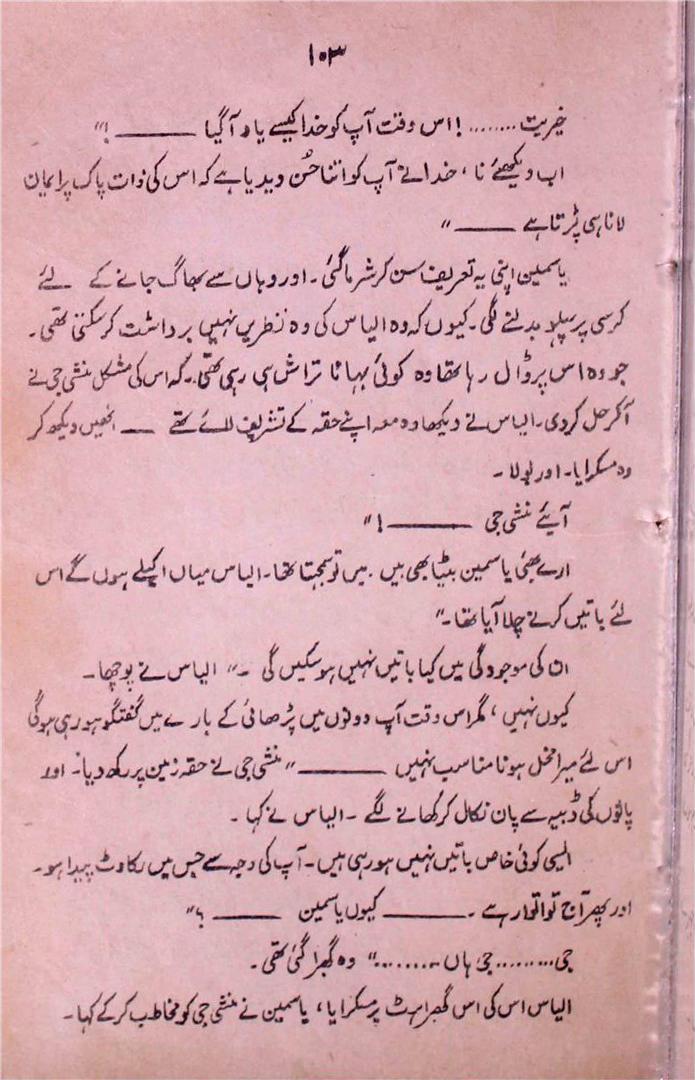 ۱۰۳
خیریت ........! اس وقت آپ کو خدا کیسے یاد آگیا ـــــــــ !"
اب دیکھئے نا، خدا نے آپ کو اتنا حُسن دیدیا ہے کہ اس کی ذات پاک پر ایمان
لانا ہی پڑتا ہے ـــــــــ "
یاسمین اپنی یہ تعریف سن کر شرما گئی۔ اور وہاں سے بھاگ جانے کے لئے
کرسی پر پہلو بدلنے لگی۔ کیوں کہ وہ الیاس کی وہ نظریں نہیں برداشت کر سکتی تھی۔
جو وہ اس پر ڈال رہا تھا وہ کوئی بہانا تراش ہی رہی تھی۔ کہ اس کی مشکل منشی جی نے
آکر حل کر دی۔ الیاس نے دیکھا وہ معہ اپنے حقہ کے تشریف لائے تھے ــــ انھیں دیکھ کر
وہ مسکرایا۔ اور بولا۔
آیئے منشی جی ـــــــــ !"
ارے بھئی یاسمین بیٹا بھی ہیں۔ میں تو سمجہتا تھا۔ الیاس میاں اکیلے ہوں گے اس
لئے باتیں کرنے چلا آیا تھا۔"
ان کی موجودگی میں کیا باتیں نہیں ہو سکیں گی ۔" الیاس نے پوچھا۔
کیوں نہیں، مگر اس وقت آپ دونوں میں پڑھائی کے بارے میں گفتگو ہو رہی ہوگی
اس لئے میرا مخل ہونا مناسب نہیں ـــــــــ " منشی جی نے حقہ زمین پر رکھ دیا۔ اور
پانوں کی ڈبیہ سے پان نکال کر کھانے لگے ۔ الیاس نے کہا ۔
ایسی کوئی خاص باتیں نہیں ہو رہی ہیں۔ آپ کی وجہ سے جس میں رکاوٹ پیدا ہو۔
اور پھر آج تو اتوار ہے ۔ ـــــــــ کیوں یاسمین ـــــــــ ؟"
جی ......... جی ہاں ........" وہ گھبرا گئی تھی۔
الیاس اس کی اس گھبراہٹ پر مسکرایا، یاسمین نے منشی جی کو مخاطب کر کے کہا۔